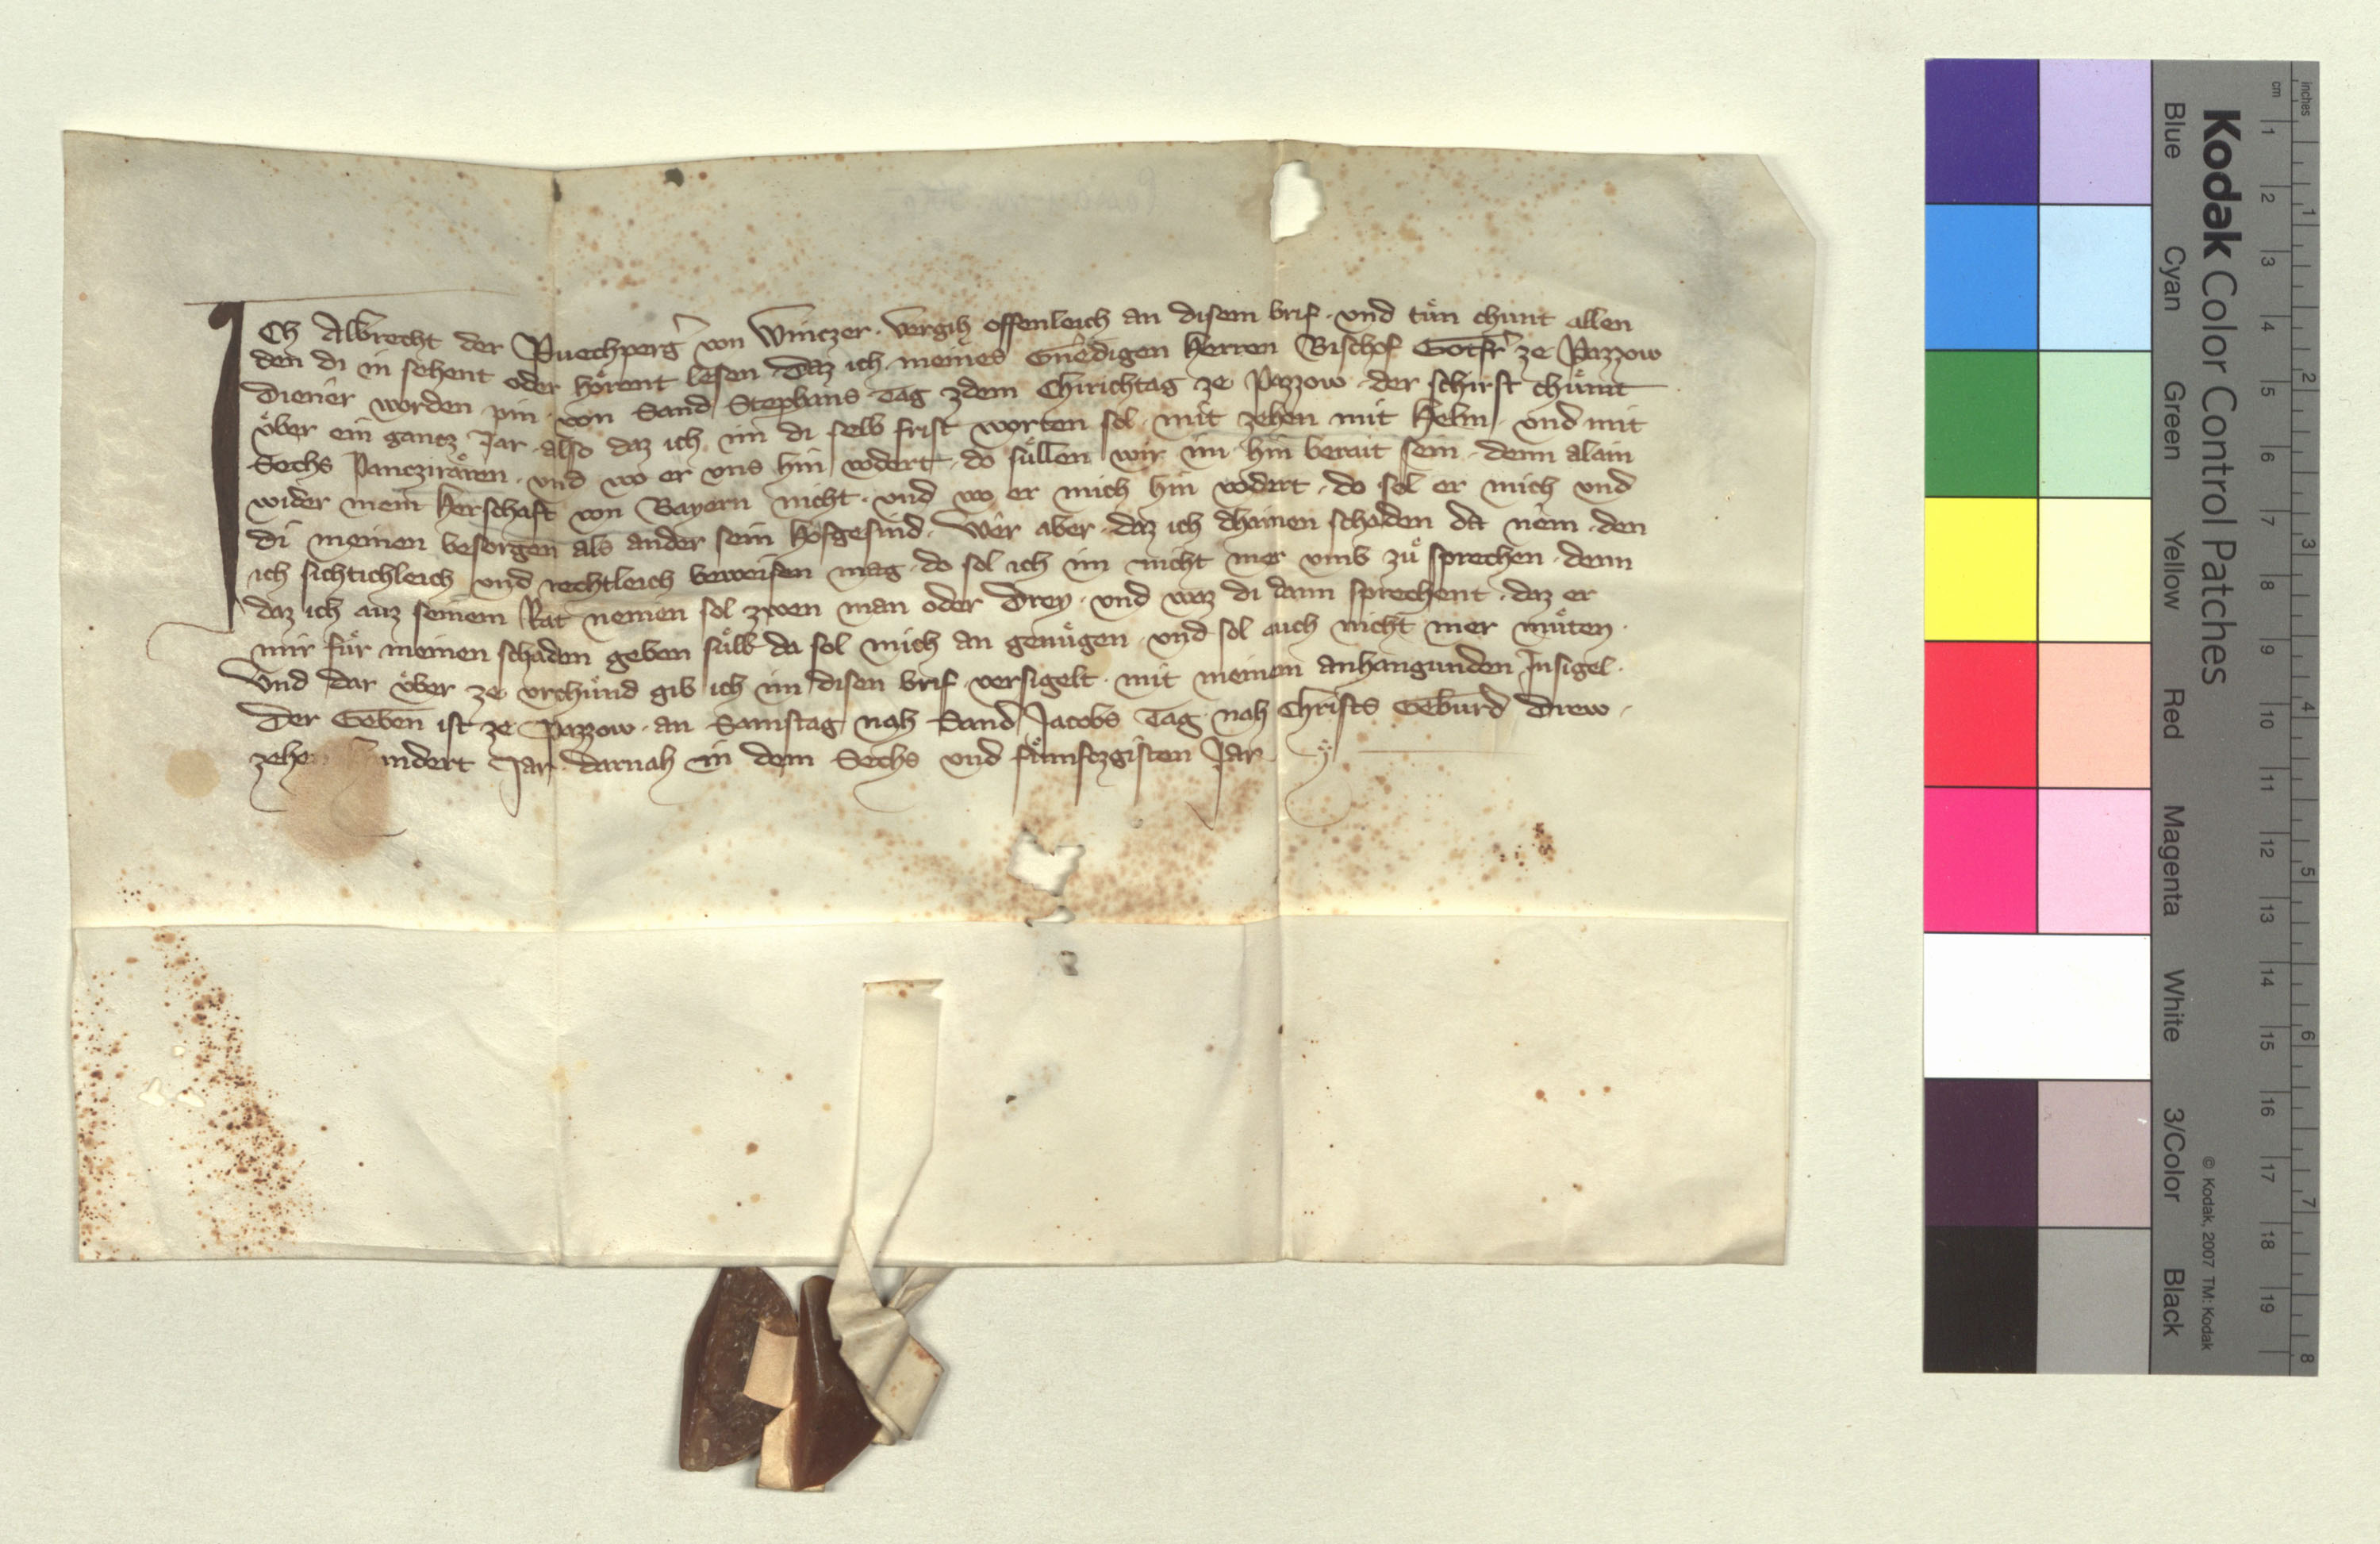 Ich Albrecht der Puechperger von Winczer · vergih offenleich an disem brif · und tůn chunt allen
den di in sehent oder hörent lesen · Daz ich meines Gnedigen Herren Bischof Gotfr ze Pazzow
Diener worden pin · von Sand Stephans Tag zdem Chirichtag ze Pazzow · der schirst chůmt
über ein gancz Jar · also daz ich im di selb frist worten sol · mit zehen mit Helm · und mit
Sechs Panczirären · und wo er uns hin vodert · do süllen wir im hin berait sein · denn alain
wider mein Herschaft von Bayern nicht · und wo er mich hin vodert · do sol er mich und
di meinen besorgen als ander sein Hofgesind · Wer aber · daz ich dhainen schaden da nem · den
ich sichtichleich und rechtleich beweisen mag · do sol ich im nicht mer umb zů sprechen · denn
daz ich auz seinem Rat nemen sol zwen man oder Drey · und waz di dann sprechent · daz er
mir für meinen schaden geben süll da sol mich an genügen · und sol auch nicht mer můten ·
Und dar über ze urchünd gib ich im disen brif · versigelt · mit meinem anhangunden Insigel ·
Der Geben ist ze Pazzow · an Samstag nah Sand Jacobs Tag · nah Christs Geburd Drew ·
zehen hundert Jar · darnah in dem Sechs und fümfczgisten Jar
Kodak Color Control Patches
Blue Cyan Green Yellow Red Magenta White 3/Color Black
© Kodak, 2007 TM: Kodak
cm 1 2 3 4 5 6 7 8 9 10 11 12 13 14 15 16 17 18 19
inches 1 2 3 4 5 6 7 8